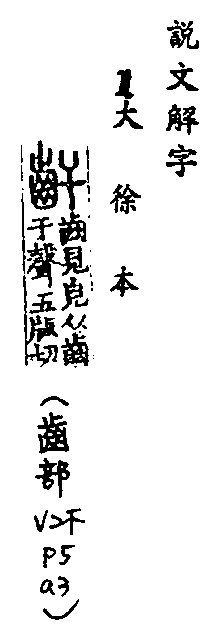 説文解字
1大徐本
齒見皃从齒
干聲五版切
(齒部V2下P5a3)